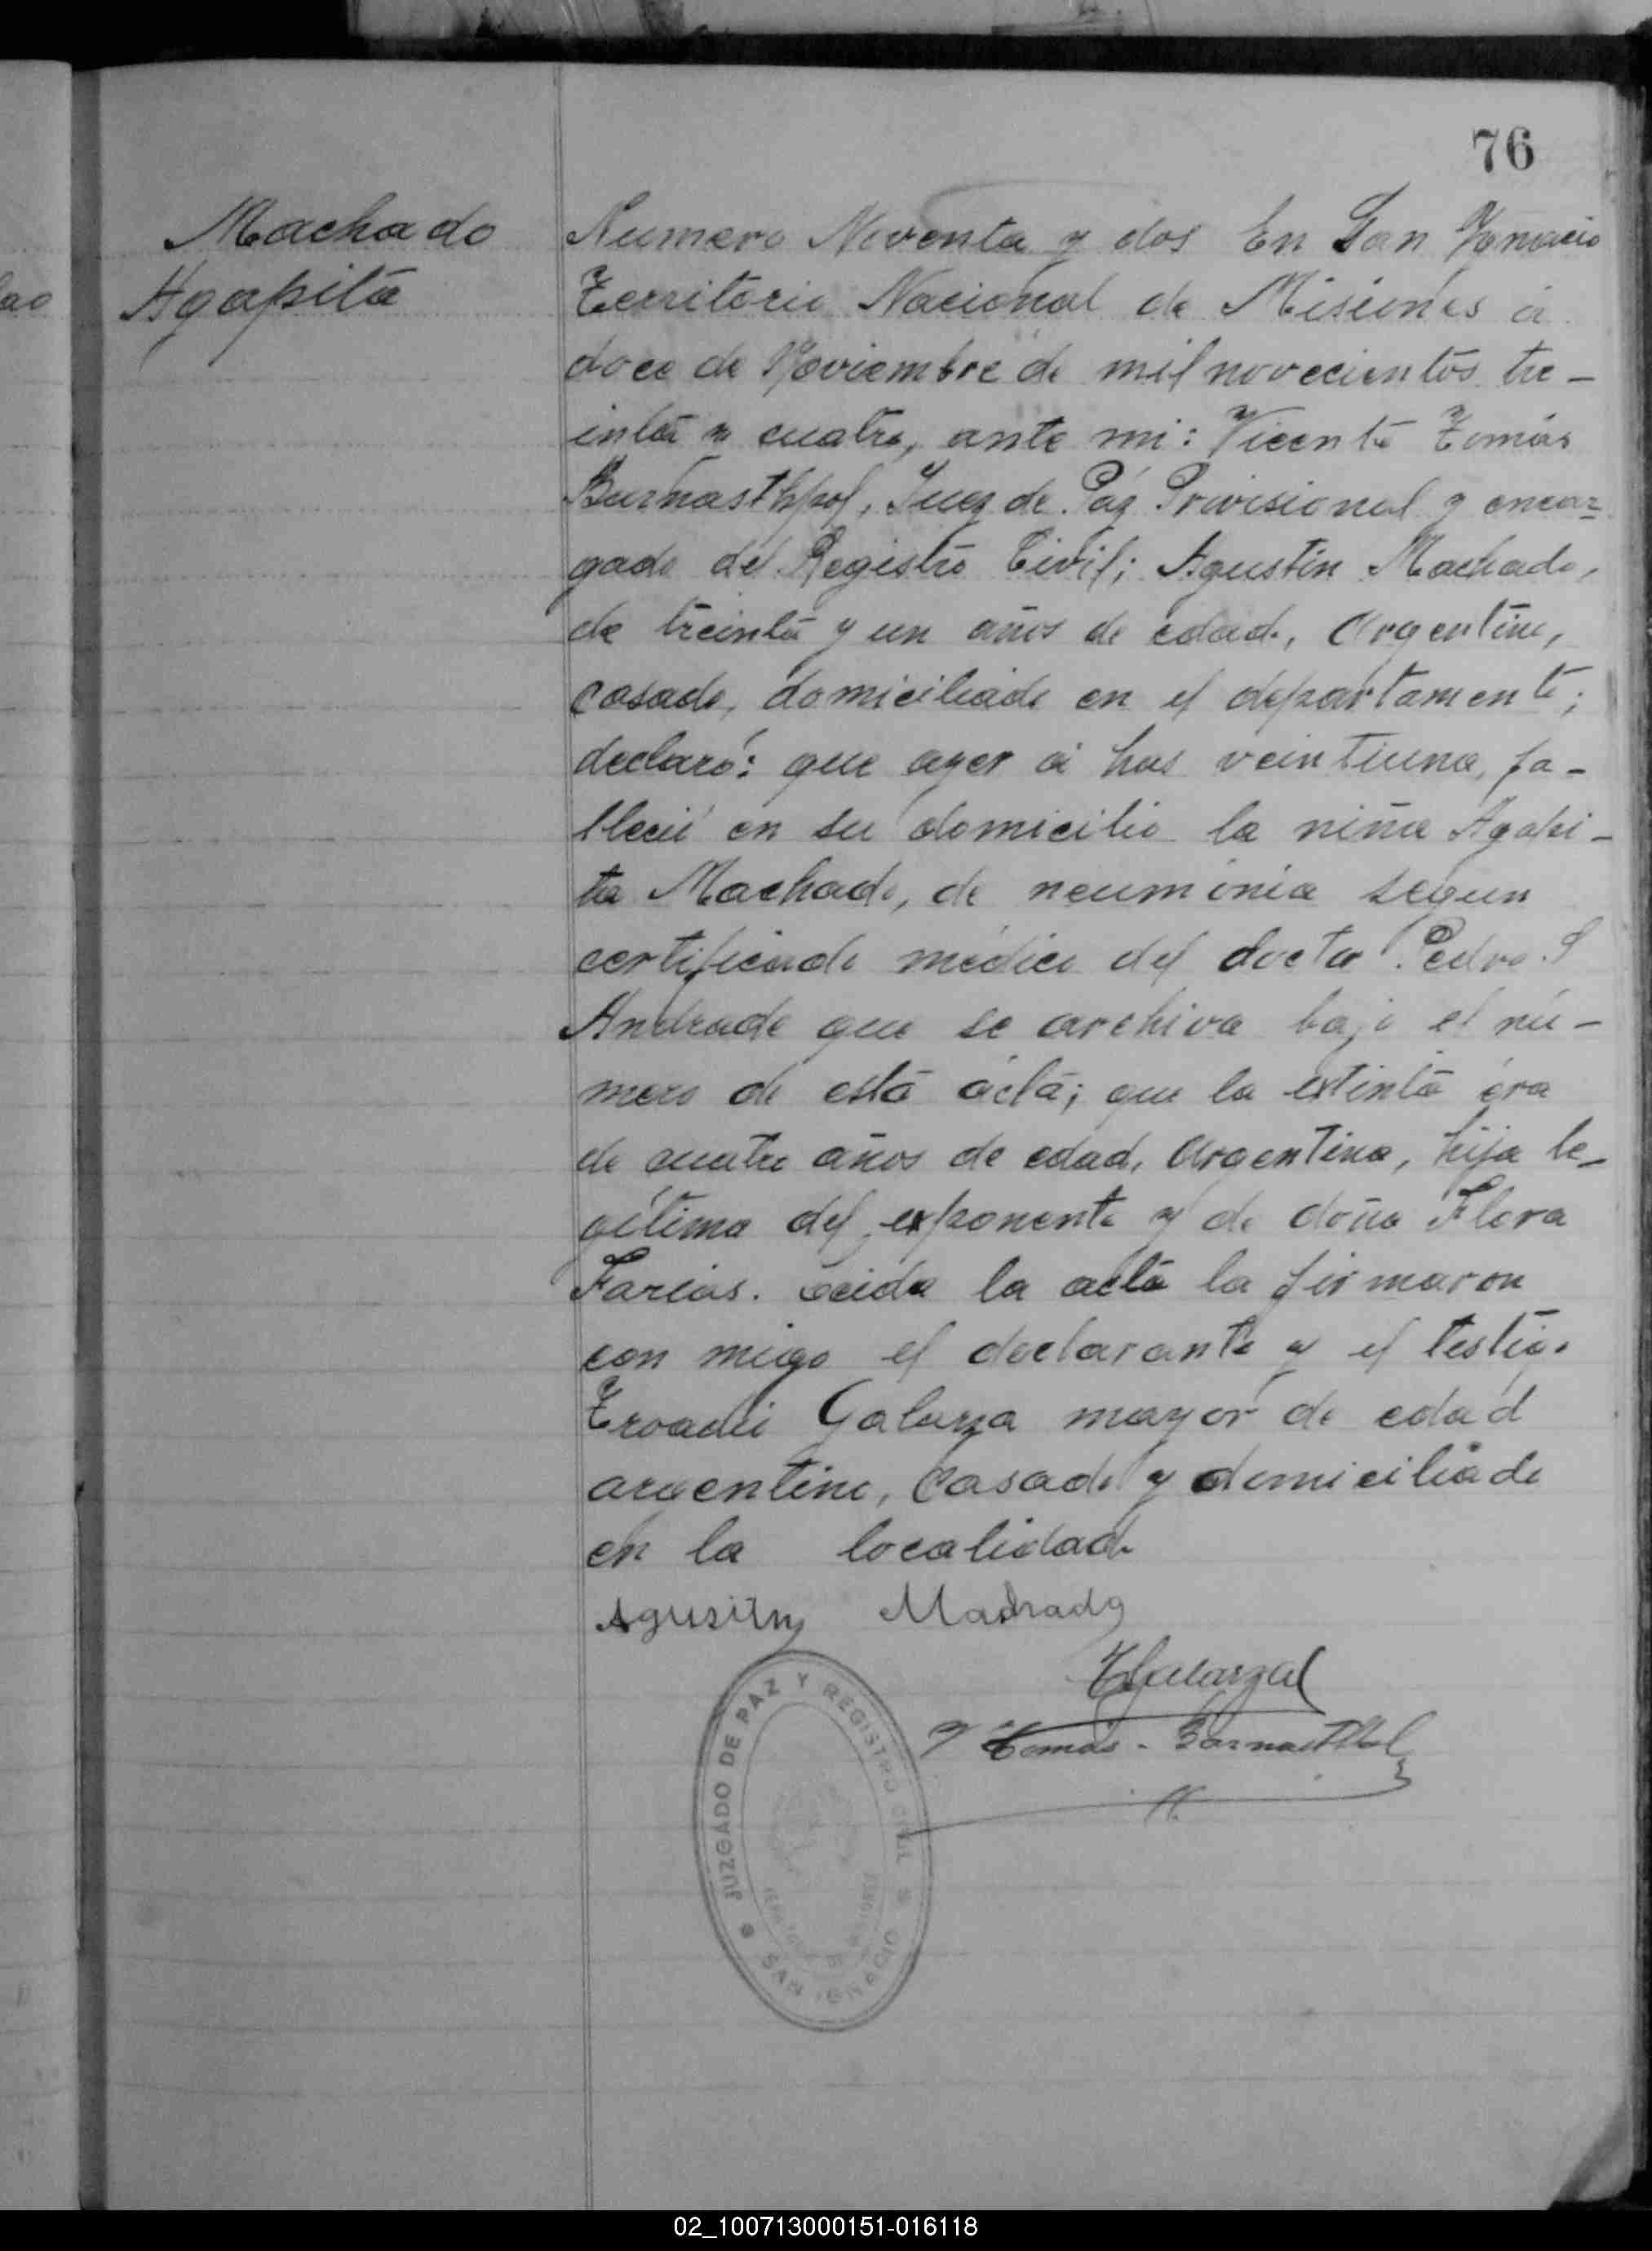 76
Machado
Agapita
Numero Noventa y dos En San Ygnacio
Territorio Nacional de Misiones á
doce de Noviembre de mil novecientos tre-
inta y cuatro, ante mi: Vicente Tomás
Juez de Páz Provisional y encar-
gado del Registro Civil; Agustin Machado,
de treinta y un años de edad, Argentino,
casado, domiciliado en el departamento;
declaró: que ayer á las veintiuna, fa-
lleció en su domicilio la niña Agapi-
ta Machado, de neumonia segun
certificado médico del doctor Pedro S
Andrade que se archiva bajo el nú-
mero de está actá; que la extinta era
de cuatro años de edad, Argentina, hija le-
gitima del exponente y de doña Flora
Farias. Leida la acta la firmaron
con migo el declarante y el testigo
Galarza mayor de edad
argentino, Casado y domiciliado
en la localidad
Agustin Machado
JUZGADO DE PAZ Y REGISTRO CIVIL
SAN IGNACIO
02_100713000151-016118